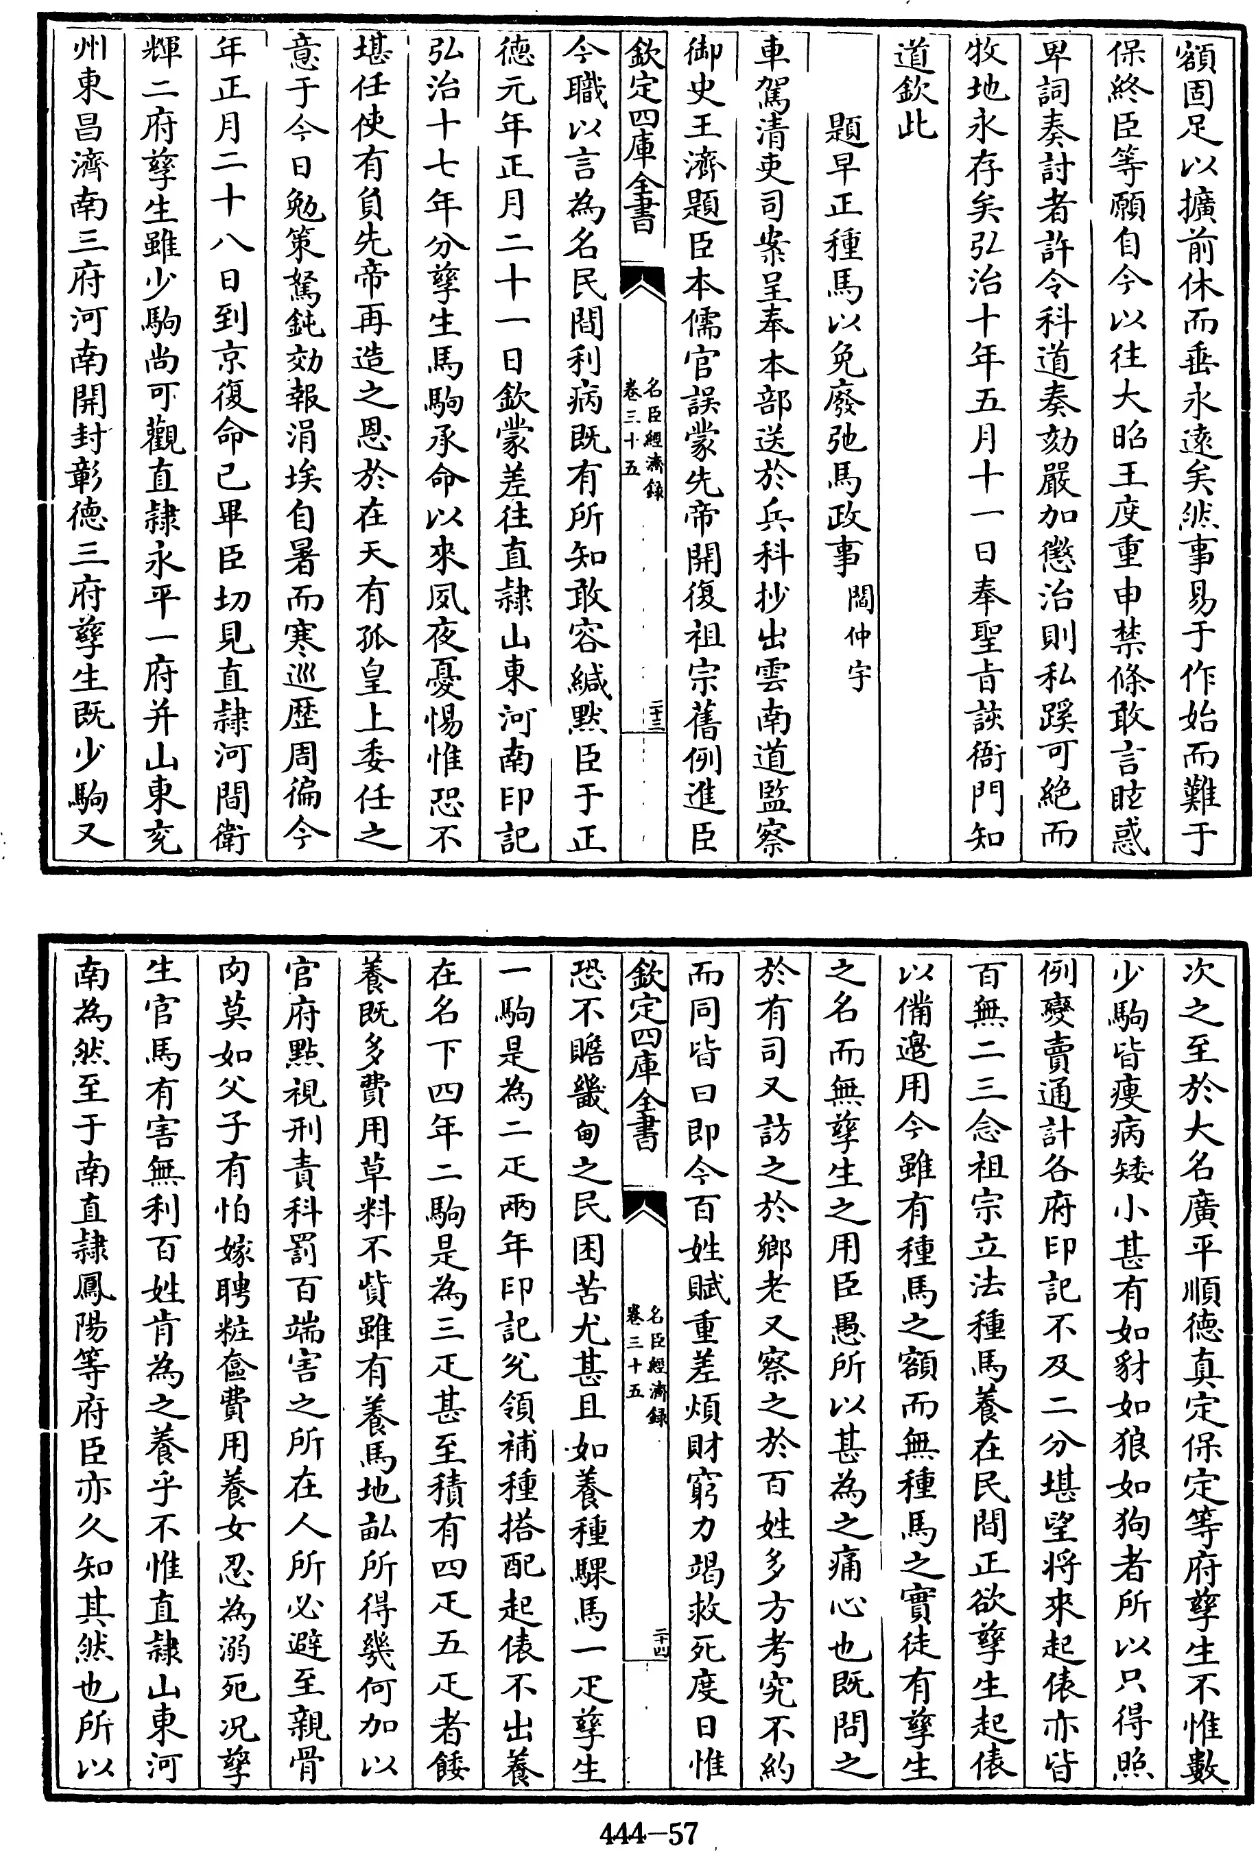 額固足以擴前休而垂永遠矣然事易于作始而難于
保終臣等願自今以往大昭王度重申禁條敢言眩惑
卑詞奏討者許令科道奏劾嚴加懲治則私蹊可絶而
牧地永存矣弘治十年五月十一日奉聖旨該衙門知
道欽此
題早正種馬以免廢弛馬政事 閻仲宇
車駕清吏司案呈奉本部送於兵科抄出雲南道監察
御史王濟題臣本儒官誤蒙先帝開復祖宗舊例進臣
欽定四庫全書
名臣經濟録
卷三十五
二十三
今職以言為名民間利病既有所知敢容緘默臣于正
德元年正月二十一日欽蒙差往直隷山東河南印記
弘治十七年分孳生馬駒承命以來夙夜憂惕惟恐不
堪任使有負先帝再造之恩於在天有孤皇上委任之
意于今日勉策駑鈍効報涓埃自暑而寒巡歴周徧今
年正月二十八日到京復命已畢臣切見直隷河間衛
輝二府孳生雖少駒尚可觀直隷永平一府并山東兖
州東昌濟南三府河南開封彰德三府孳生既少駒又
次之至於大名廣平順徳真定保定等府孳生不惟數
少駒皆瘦病矮小甚有如豺如狼如狗者所以只得照
例變賣通計各府印記不及二分堪望将來起俵亦皆
百無二三念祖宗立法種馬養在民間正欲孳生起俵
以備邊用今雖有種馬之額而無種馬之實徒有孳生
之名而無孳生之用臣愚所以甚為之痛心也既問之
於有司又訪之於鄉老又察之於百姓多方考究不約
而同皆曰即今百姓賦重差煩財窮力竭救死度日惟
欽定四庫全書
名臣經濟録
卷三十五
二十四
恐不贍畿甸之民困苦尤甚且如養種騍馬一疋孳生
一駒是為二疋兩年印記兊領補種搭配起俵不出養
在名下四年二駒是為三疋甚至積有四疋五疋者餧
養既多費用草料不貲雖有養馬地畝所得幾何加以
官府點視刑責科罰百端害之所在人所必避至親骨
肉莫如父子有怕嫁聘粧奩費用養女忍為溺死况孳
生官馬有害無利百姓肯為之養乎不惟直隷山東河
南為然至于南直隷鳳陽等府臣亦久知其然也所以
444-57